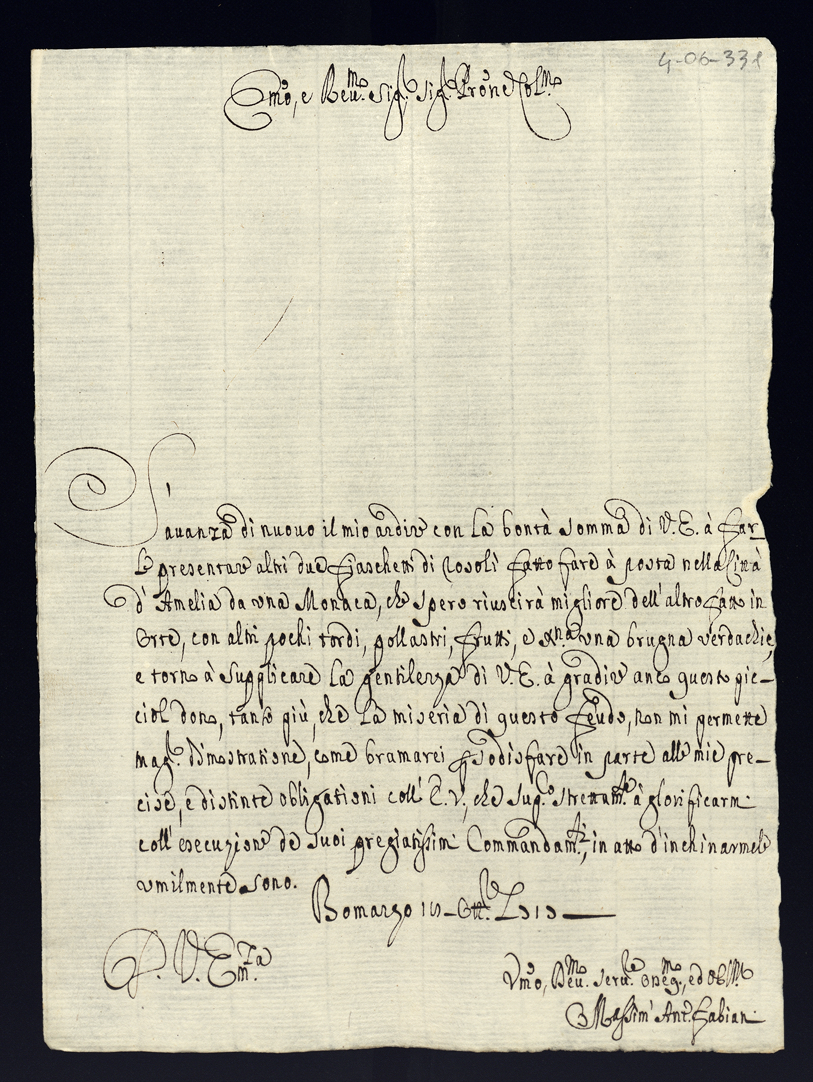 4-06-331
Em̃o, e Reu.mo Sig.r Sig.r Prõn e Col.mo
S'auanza di nuouo il mio ardire con la bontà somma di V. E. à far
le presentare altri due fiaschetti di rosolì fatto fare à posta nella Città
d'Amelia da una Monaca, che spero riuscirà migliore dell'altro fatto in
Orte, con altri pochi tordi, pollastri, frutti, e una brugna verdachie,
e torno à supplicare la gentilezza di V. E. à gradire anco questo pic-
ciol dono, tanto più, che la miseria di questo feudo, non mi permette
mag.r dimostratione, come bramarei sodisfare in parte alle mie pre-
cise, e distinte obligationi coll'E. V., che sup.co strettam.te à glorificarmi
coll'esecuzione de suoi pregiatissimi Commandam.ti, in atto d'inchinarmele
umilmente sono.
Bomarzo Ott.re
D. V. Em.za
Vm̃o, Deu.mo Seru.re ed Obl.mo
Massim' Ant.o Fabiani